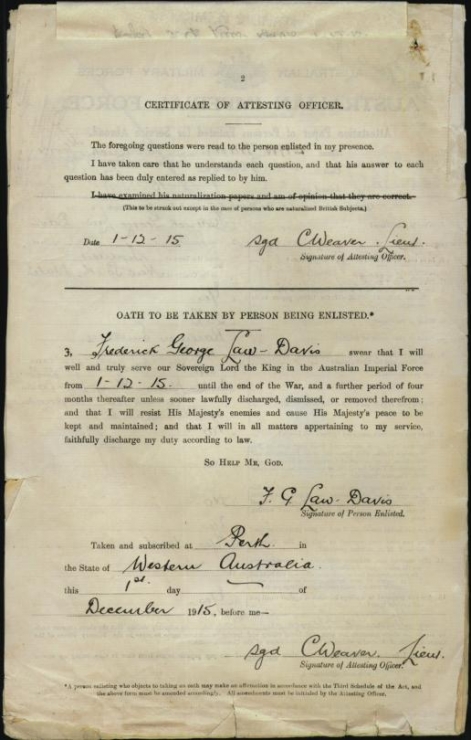 2
CERTIFICATE OF ATTESTING OFFICER.
The foregoing questions were read to the person enlisted in my presence.
I have taken care that he understands each question, and that his answer to each
question has been duly entered as replied to by him.
I have examined his naturalization papers and am of opinion that they are correct.
(This to be struck out except in the case of persons who are naturalized British Subjects.)
Date 1-12-15 sgd CWeaver. Lieut.
Signature of Attesting Officer.
OATH TO BE TAKEN BY PERSON BEING ENLISTED.*
3, Frederick George Law-Davis swear that I will
well and truly serve our Sovereign Lord the King in the Australian Imperial Force
from 1-12-15. until the end of the War, and a further period of four
months thereafter unless sooner lawfully discharged, dismissed, or removed therefrom;
and that I will resist His Majesty's enemies and cause His Majesty's peace to be
kept and maintained; and that I will in all matters appertaining to my service,
faithfully discharge my duty according to law.
SO HELP ME, GOD.
F. G Law-Davis
Signature of Person Enlisted.
Taken and subscribed at Perth. in
the State of Western Australia.
this 1st. day — of
December 1915, before me—
sgd CWeaver. Lieut.
Signature of Attesting Officer.
*A person enlisting who objects to taking an oath may make an affirmation in accordance with the Third Schedule of the Act, and
the above form must be amended accordingly. All amendments must be initialed by the Attesting Officer.